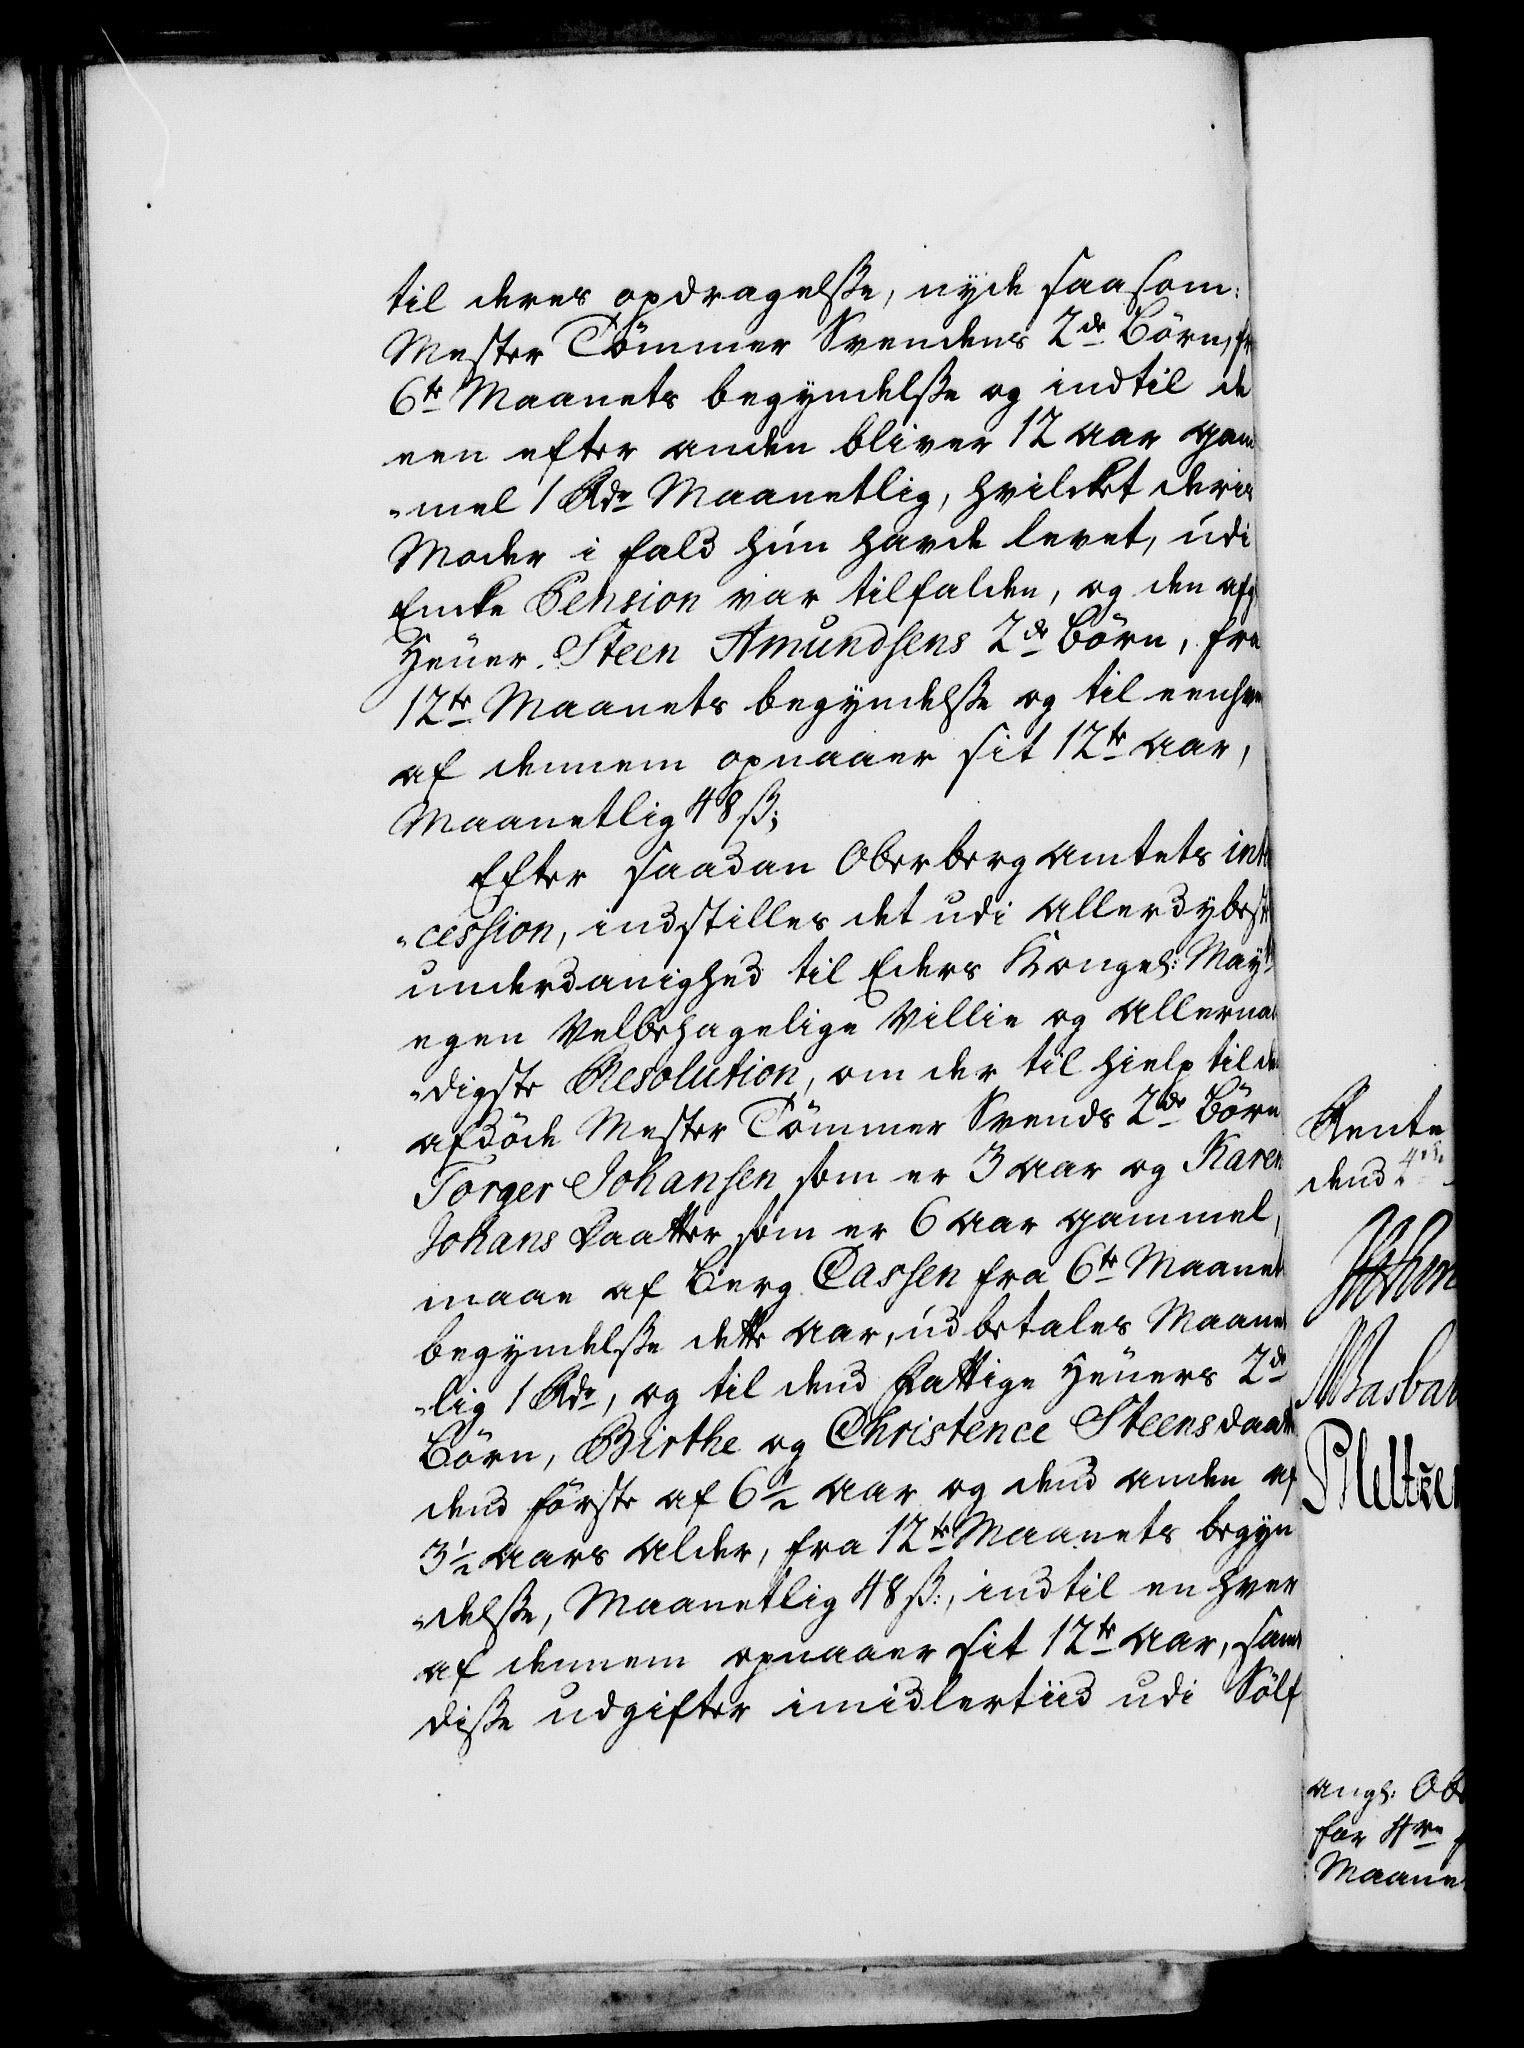 til deres opdragelße, nyde saasom:
Mester Tömmer Svendens 2de Börn, fr
6te Maanets begyndelße og indtil de
een efter anden bliver 12 aar gam
-mel 1 Rdr Maanetlig, hvilcket deris
Moder i fald hun havde levet, udi
Encke Pension var tilfalden, og den afg
Heuer. Steen Amundsens 2de Börn, fra
12te Maanets begyndelße og til eenhver
af dennem opnaaer sit 12te aar,
Maanetlig 48 ß;
Efter saadan Oberberg amtets inte
-cession, indstilles det udi allerdybeste
underdanighed til Eders Kongel: Mayts
egen Velbehagelige Villie og allernaa
-digste Resolution, om der til hielp til de
afdöde Mester Tömmer Svends 2de Börn
Torger Johansen som er 3 aar og Karen
Johans Daatter som er 6 aar gammel,
maae af Berg Cassen fra 6te Maanet
begyndelße dette aar, udbetales Maanet
-lig 1 Rdr, og til dend fattige Heuers 2de
Börn, Birthe og Christence Steensdaatt
dend förste af 6½ aar og dend anden af
3½ aars alder, fra 12te Maanets begyn
-delße, Maanetlig 48 ß:, indtil en hver
af dennem opnaaer sit 12te aar, samt
diße udgifter imidlertiid udi Sölf
Rente
dend
angl: Obe
for
Maane